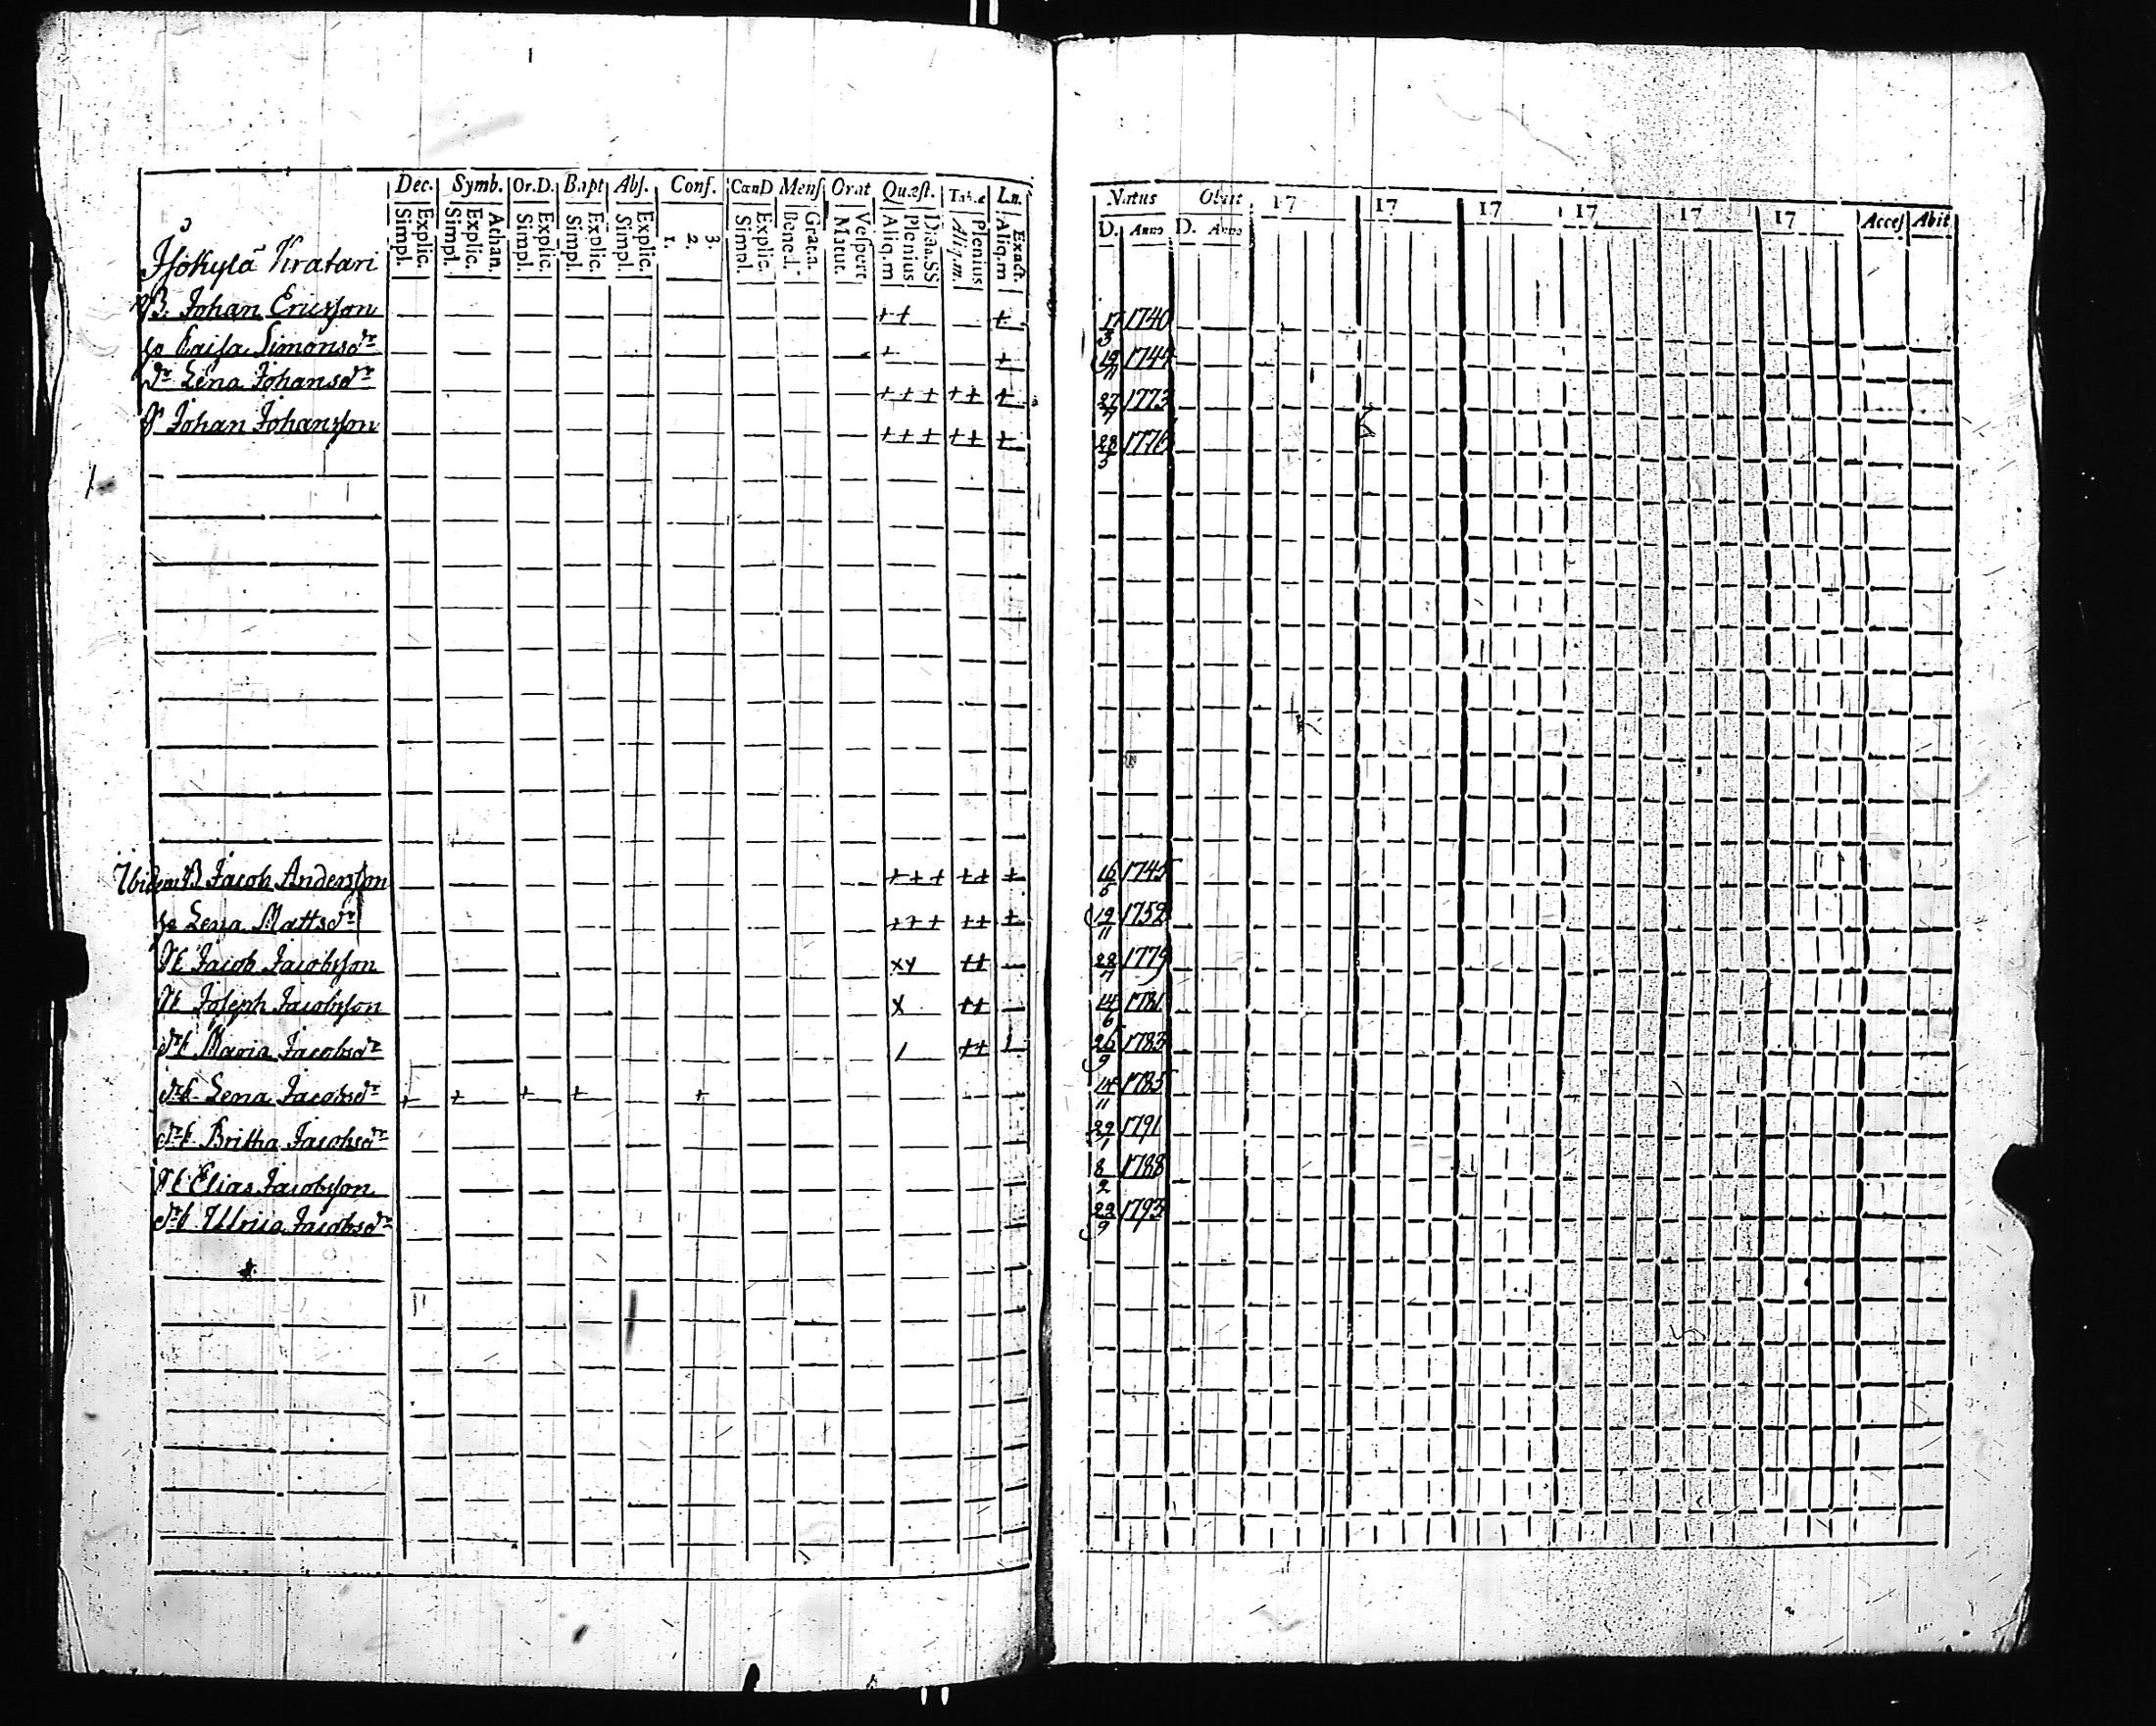 1
Dec. Symb. Or.D. Bapt Abs. Conf. CœnD Mens Orat Quæst. Ln.
Simpl. Explic. Simpl. Explic. Athan. Simpl. Explic. Simpl. Explic. Simpl. Explic. 1. 2. 3. Simpl. Explic. Bened. Grat.a. Matut. Vespert Aliq.m Plenius Dicta.SS Aliq.m. Plenius Aliq.m Exact.
Natus Obiit 17 17 17 17 17 17 Acces Abit
D. Anno D. Anno
Isokylä
B. Johan Ericsson ++ + 17/3 1740
Caisa Simonsdr + + 19/11 1744
Dr Lena Johansdr +++ ++ + 27/7 1773
Johan Johansson +++ ++ + 28/3 1776
Ibidem B Jacob Andersson +++ ++ + 16/6 1745
Lena Mattsdr +++ ++ + 19/11 1752
Jacob Jacobsson xy ++ 28/7 1779
Joseph Jacobsson x ++ 14/6 1781
Maria Jacobsdr / ++ 1 26/9 1783
Lena Jacobsdr + + + + + 14/11 1785
Britha Jacobsdr 22/1 1791
Elias Jacobsson 8/2 1788
Ulrica Jacobsdr 22/9 1793